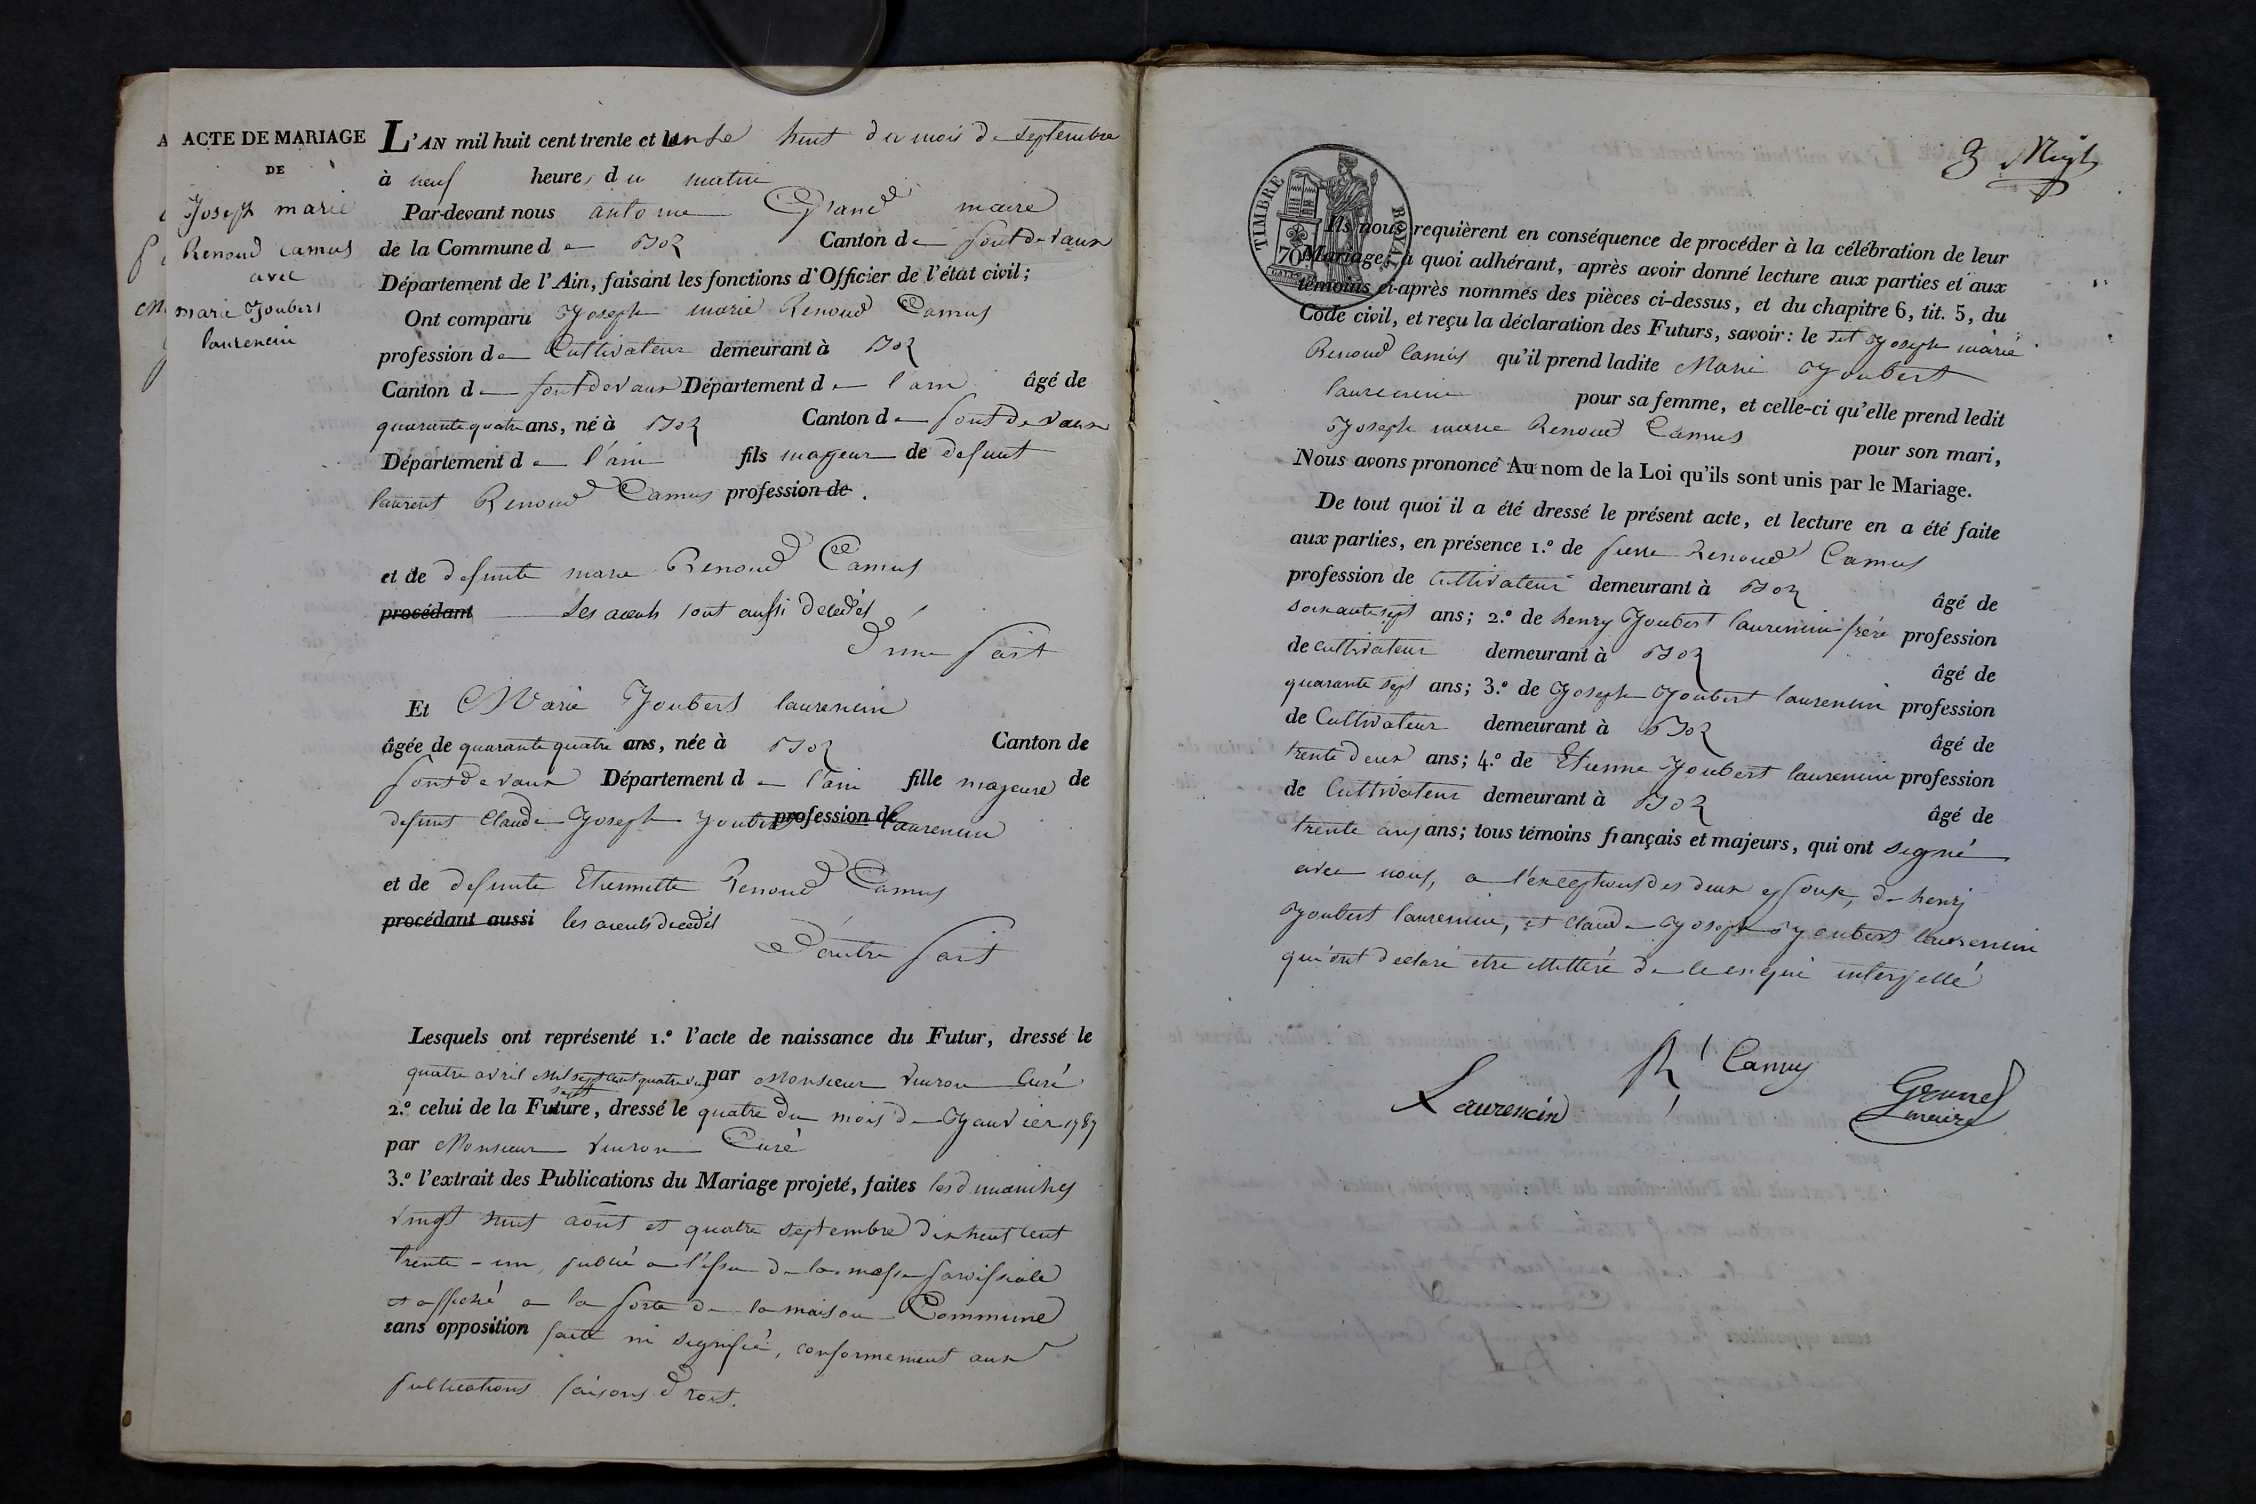 ACTE DE MARIAGE
DE
Joseph marie
Renoud Camus
avec
marie Joubert
laurencin
L'AN mil huit cent trente et un le huit du mois de septembre
à neuf heures du matin
Par-devant nous antoine maire
de la Commune de Boz Canton de pontdevaux
Département de l'Ain, faisant les fonctions d'Officier de l'état civil;
Ont comparu Joseph marie Renoud Camus
profession de Cultivateur demeurant à Boz
Canton de pontdevaux Département de l'ain âgé de
quarante quatre ans, né à Boz Canton de pontdevaux
Département de l'ain fils majeur de defunt
laurent Renoud Camus profession de
et de defunte marie Renoud Camus
procédant Les aieuls sont aussi decedés
D'une part
Et Marie Joubert laurencin
âgée de quarante quatre ans, née à Boz Canton de
pontdevaux Département de l'ain fille majeure de
defunt Claude Joseph Joubert profession de laurencin
et de defunte Etiennette Renoud Camus
procédant aussi les aieuls decedés
D'autre part
Lesquels ont représenté 1.º l'acte de naissance du Futur, dressé le
quatre avril mil sept cent quatre vingt par Monsieur Vuiron Curé
sept
2.º celui de la Future, dressé le quatre du mois de Janvier 1787
par Monsieur Vuiron Curé
3.º l'extrait des Publications du Mariage projeté, faites les dimanches
vingt huit août et quatre septembre dix huit cent
trente - un, publié a l'issue de la messe paroissiale
et affiché a la porte de la maison Commune
sans opposition faite ni signifié, conformement aux
publications faisons droit.
3 Negt
TIMBRE ROYAL
70
Ils nous requièrent en conséquence de procéder à la célébration de leur
Mariage; à quoi adhérant, après avoir donné lecture aux parties et aux
témoins ci-après nommés des pièces ci-dessus, et du chapitre 6, tit. 5, du
Code civil, et reçu la déclaration des Futurs, savoir: le dit Joseph marie
Renoud Camus qu'il prend ladite Marie Joubert
laurencin pour sa femme, et celle-ci qu'elle prend ledit
Joseph marie Renoud Camus pour son mari,
Nous avons prononcé Au nom de la Loi qu'ils sont unis par le Mariage.
De tout quoi il a été dressé le présent acte, et lecture en a été faite
aux parties, en présence 1.º de pierre Renoud Camus
profession de cultivateur demeurant à Boz âgé de
soixante sept ans; 2.º de henry Joubert laurencin frère profession
de cultivateur demeurant à Boz âgé de
quarante sept ans; 3.º de Joseph Joubert laurencin profession
de Cultivateur demeurant à Boz âgé de
trente deux ans; 4.º de Etienne Joubert laurencin profession
de Cultivateur demeurant à Boz âgé de
trente ans; tous témoins français et majeurs, qui ont signé
avec nous, a l'exception des deux epoux, de henry
Joubert laurencin, et claude Joseph Joubert laurencin
qui ont declaré etre illettéré de ce enquis interpellé
Laurencin
Rd Camus
maire